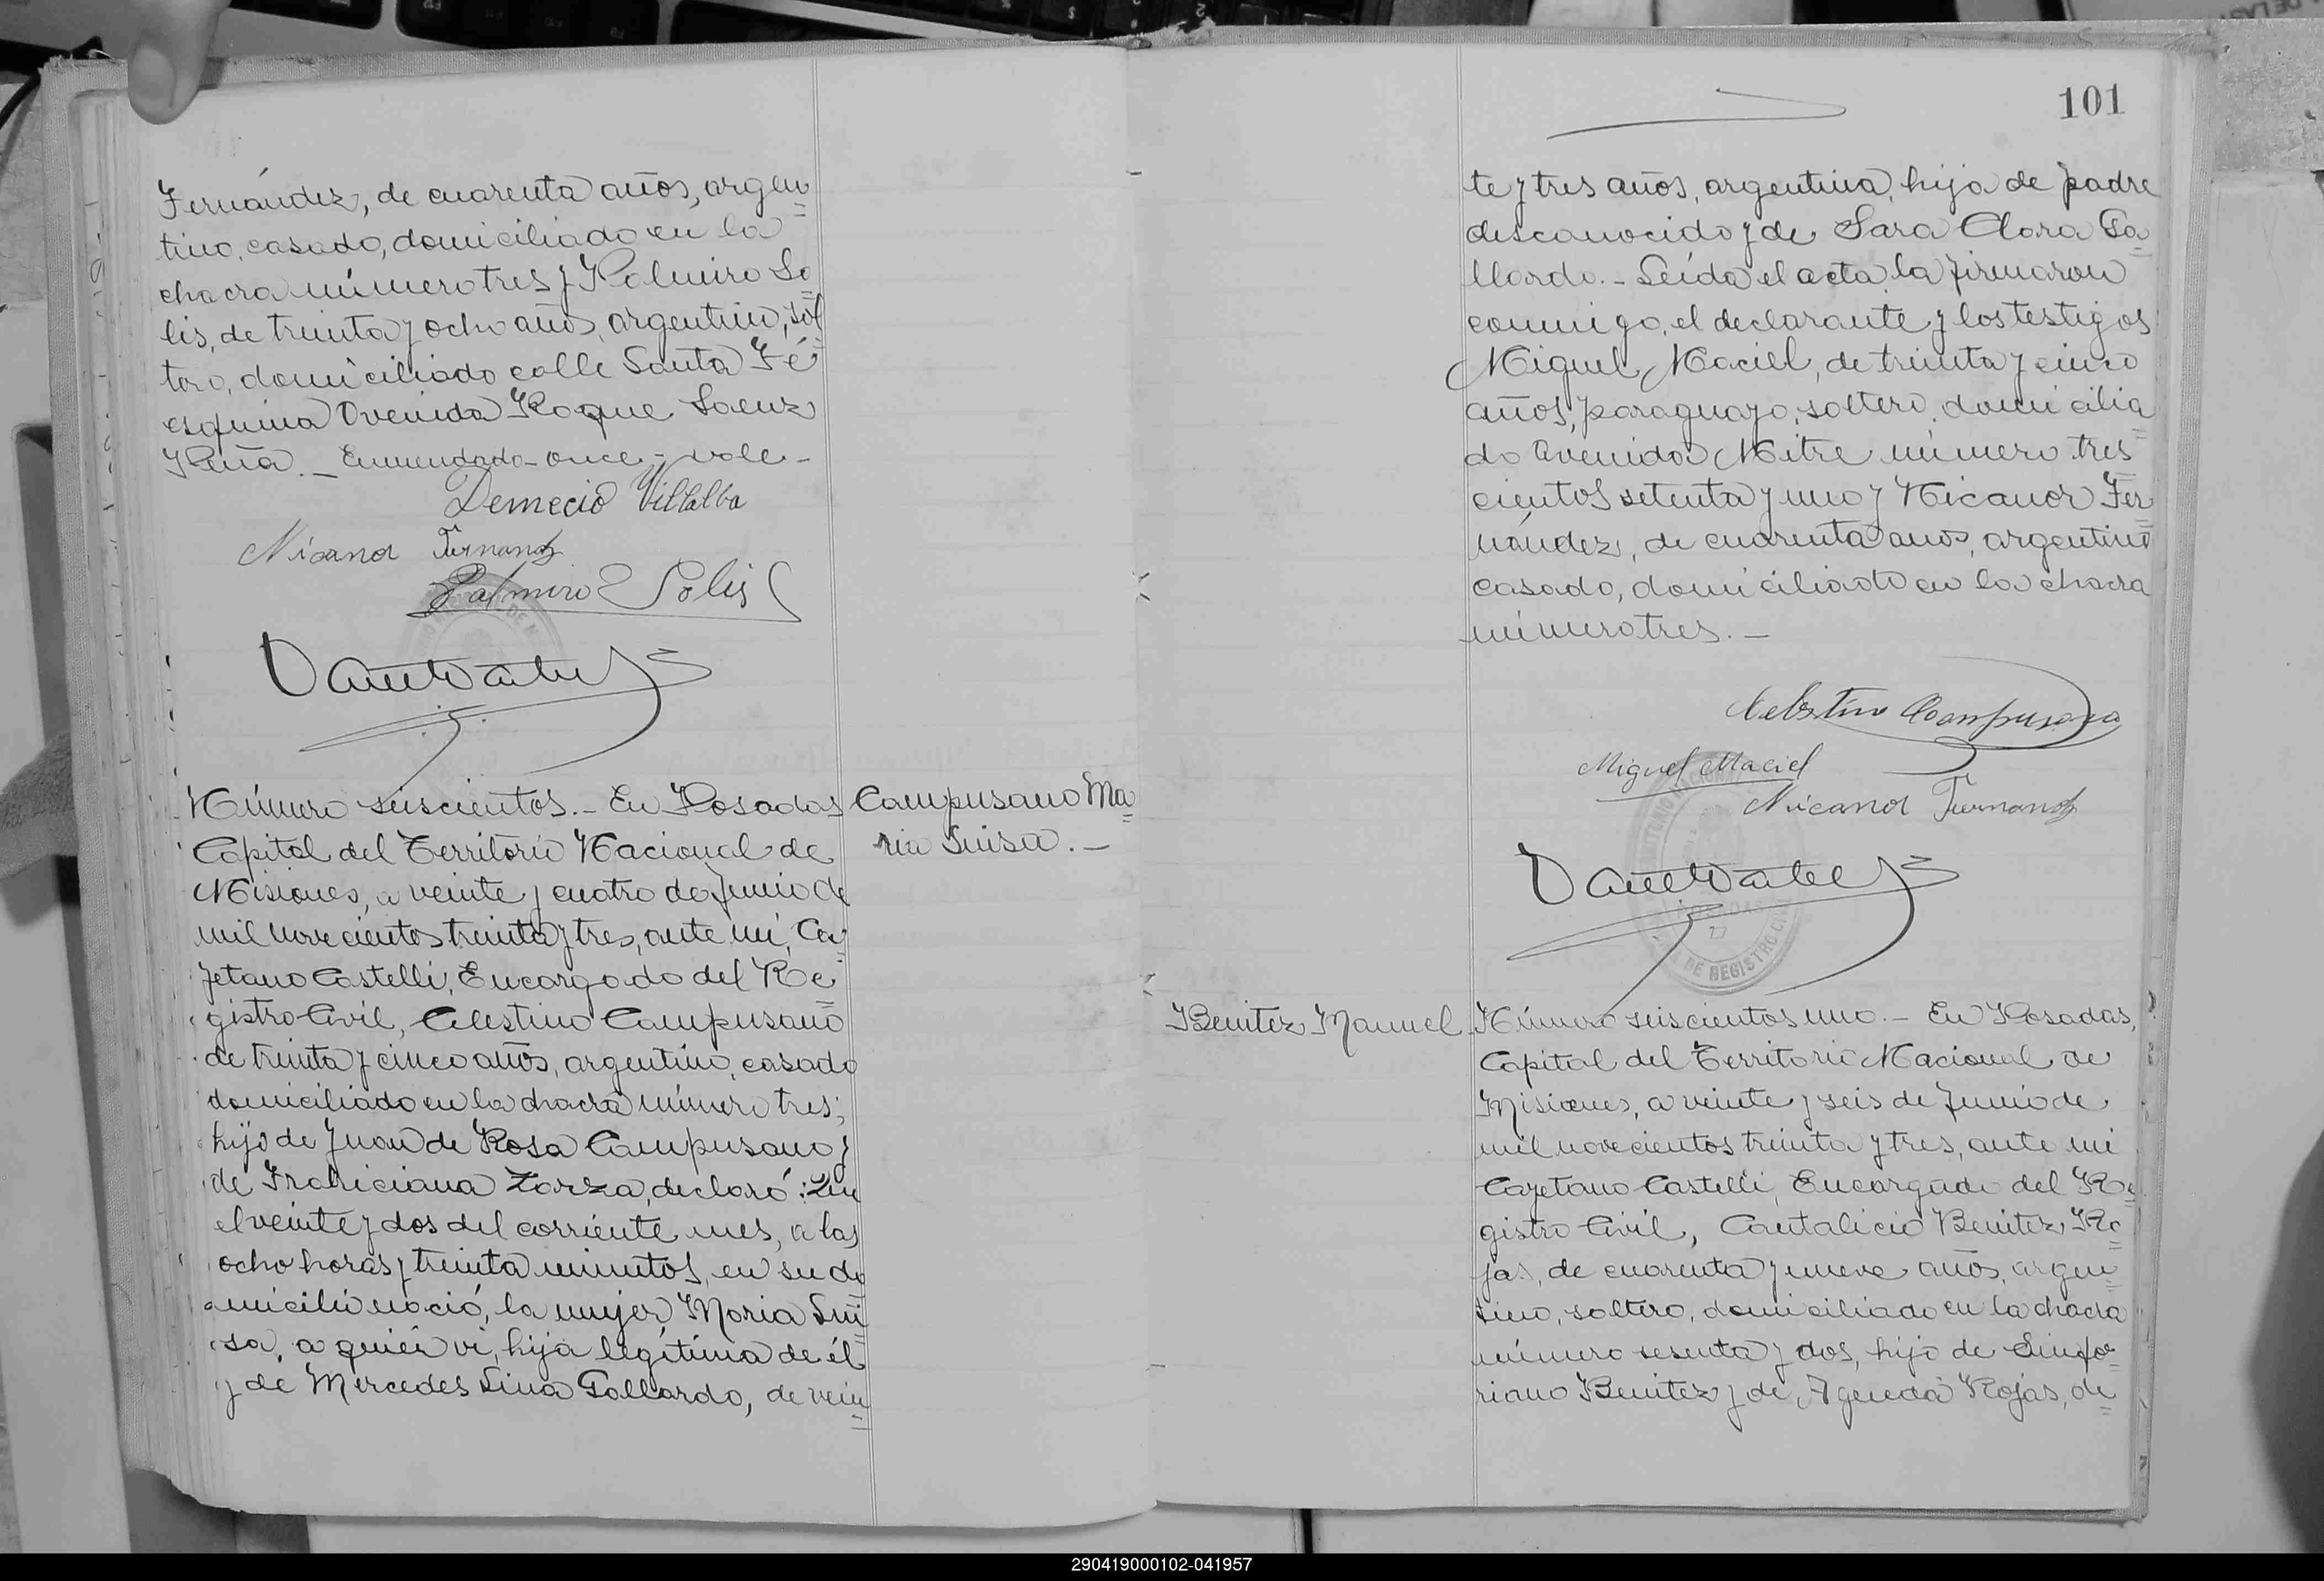 Fernández, de cuarenta años, argen=
tino, casado, domiciliado en la
chacra número tres y Palmiro So=
lis, de treinta y ocho años, argentino, sol=
tero, domiciliado calle Santa Fé
esquina Avenida Roque Saenz
Peña._ Enmendado-once-vale-
Demecio Villalba
Nicanor Fernandz
Palmiro Solis
Número seiscientos._ En Posadas
Capital del Territorio Nacional de
Misiones, a veinte y cuatro de Junio de
mil novecientos treinta y tres, ante mí, Ca=
yetano Castelli, Encargado del Re=
gistro Civil, Celestino Campusano
de treinta y cinco años, argentino, casado
domiciliado en la chacra número tres;
hijo de Juan de Rosa Campusano y
de Froriciana Zarza, declaró: Que
el veinte y dos del corriente mes, a las
ocho horas y treinta minutos, en su do
micilio nació, la mujer, Maria Lui=
sa, a quién vi, hija legítima de él
y de Mercedes Lina Gallardo, de vein=
Campusano Ma=
ria Luisa._
101
te y tres años, argentina, hija de padre
desconocido y de Sara Clara Ga=
llardo._ Leída el acta la firmaron
conmigo, el declarante y los testigos
Miguel Maciel, de treinta y cinco
años, paraguayo, soltero, domicilia=
do Avenida Mitre número tres=
cientos setenta y uno y Nicanor Fer=
nández, de cuarenta años, argentino
casado, domiciliado en la chacra
número tres._
Celestino Campusano
Miguel Maciel
Nicanor Fernandz
DE REGISTRO CIVIL
Benitez Manuel
Número seiscientos uno._ En Posadas,
Capital del Territorio Nacional de
Misiones, a veinte y seis de Junio de
mil novecientos treinta y tres, ante mi
Cayetano Castelli, Encargado del Re=
gistro Civil, Cantalicio Benitez Ro=
jas, de cuarenta y nueve años, argen=
tino, soltero, domiciliado en la chacra
número sesenta y dos, hijo de Sinfo=
riano Benitez y de Agueda Rojas, de=
290419000102-041957